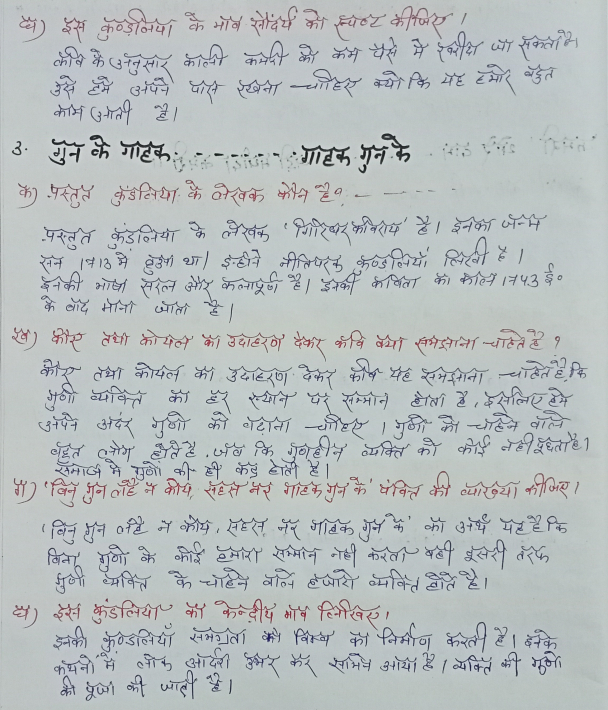 घ) इस कुण्डलिया के भाव सौंदर्य को स्पष्ट कीजिए ।
कवि के अनुसार काली कमरी को कम पैसे में खरीदा जा सकता है।
उसे हमे अपने पास रखना चाहिए क्यो कि यह हमारे बहुत
काम आती है।
3. गुन के गाहक. - - - - - - - - - गाहक गुन के
क) प्रस्तुत कुंडलिया के लेखक कौन है?
प्रस्तुत कुंडलिया के लेखक 'गिरिधर कविराय' है। इनका जन्म
सन 1713 में हुआ था। इन्होने नीतिपरक कुण्डलियाँ लिखी है।
इनकी भाषा सरल और कलापूर्ण है। इनकी कविता का काल 1743 ई०
के बाद माना जाता है।
ख) कौए तथा कोयल का उदाहरण देकर कवि क्या समझाना चाहते है ?
कौए तथा कोयल का उदाहरण देकर कवि यह समझाना चाहते है कि
गुणी व्यक्ति का हर स्थान पर सम्मान होता है, इसलिए हमे
अपने अंदर गुणो को बढाना चाहिए । गुणो को चाहने वाले
बहुत लोग होते है, जब कि गुणहीन व्यक्ति को कोई नही पूछता है।
समाज मे गुणो की ही कद्र होती है।
ग) 'बिनु गुन लहै न कोय, सहस नर गाहक गुन के' पंक्ति की व्याख्या कीजिए।
'बिनु गुन लहै न कोय, सहस नर गाहक गुन के' का अर्थ यह है कि
बिना गुणो के कोई हमारा सम्मान नही करता वही दूसरी तरफ
गुणी व्यक्ति के चाहने वाले हजारो व्यक्ति होते है।
घ) इस कुंडलिया का केन्द्रीय भाव लिखिए।
इनकी कुण्डलियाँ समग्रता का बिम्ब का निर्माण करती है। इनके
कथनो मे लोक आदर्श उभर कर सामने आया है। व्यक्ति की गुणो
की पूजा की जाती है।